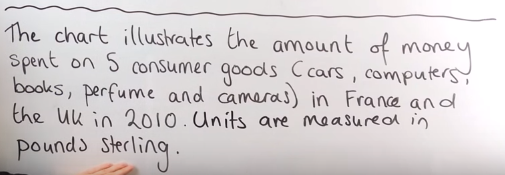 The chart illustrates the amount of money
spent on 5 consumer goods (cars, computers,
books, perfume and cameras) in France and
the UK in 2010. Units are measured in
pounds sterling.